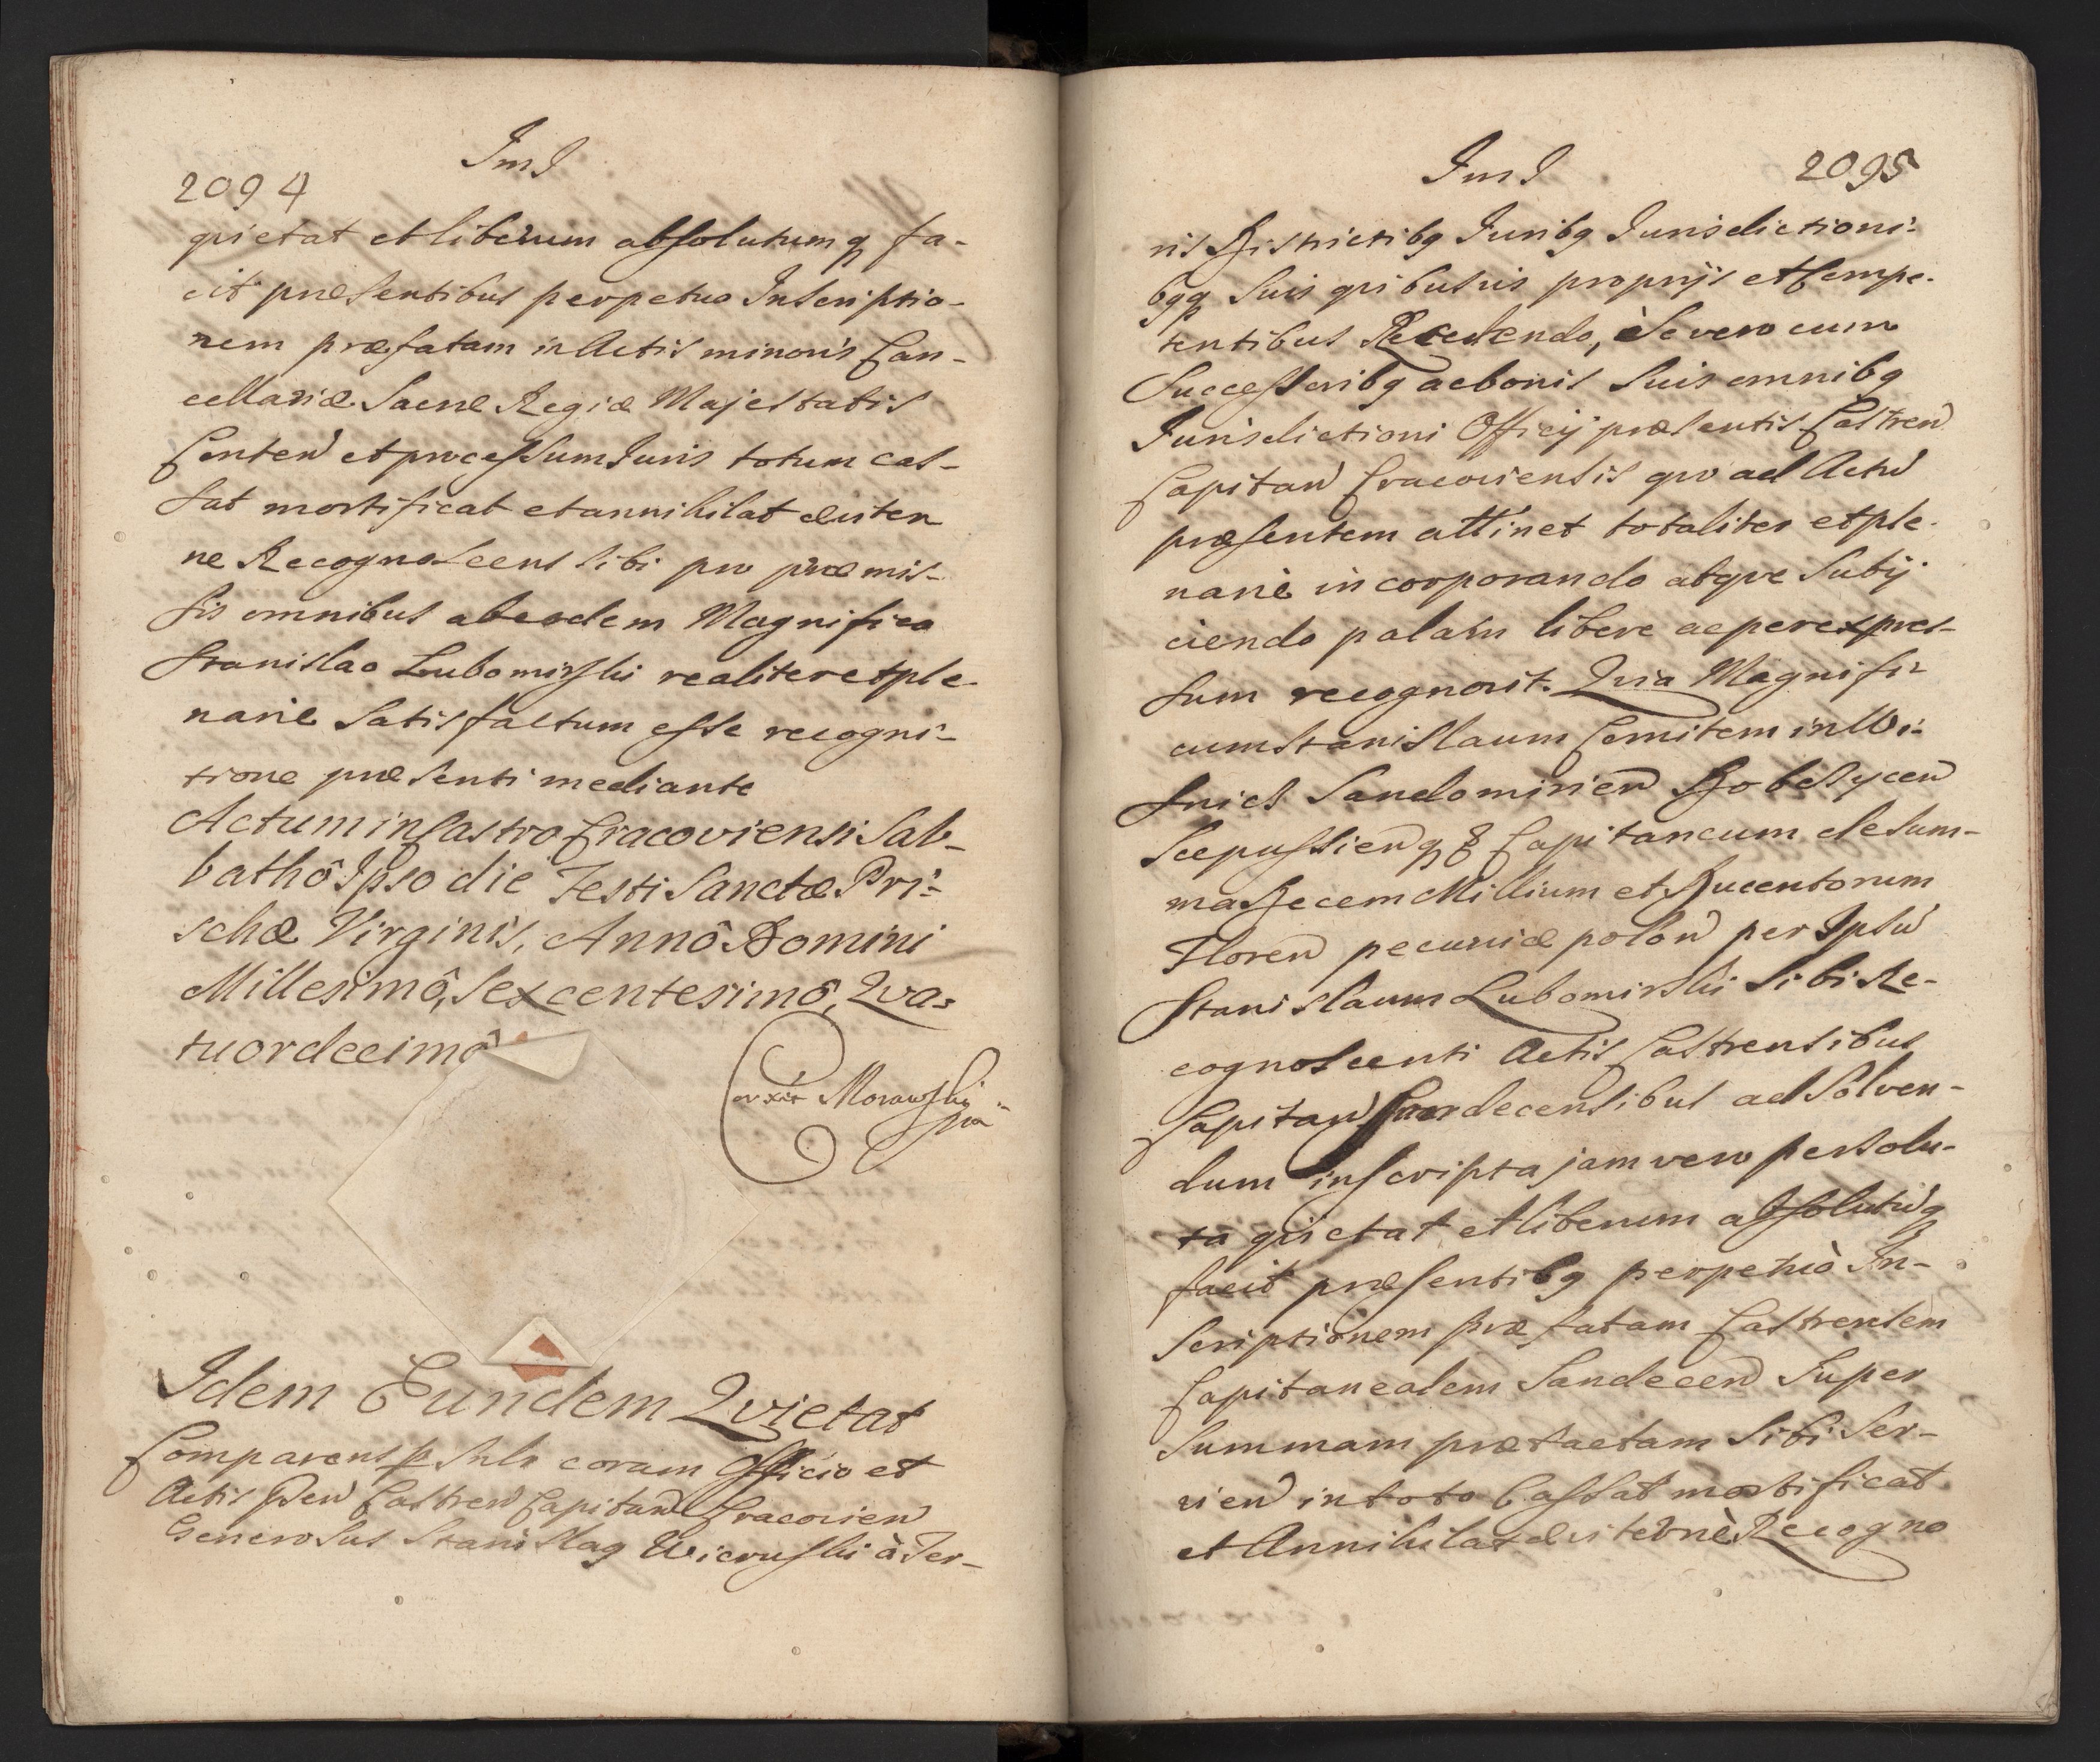 2094
ImJ
qvietat et liberum absolutumq fa-
cit præsentibus perpetuo Inscriptio-
nem præfatam in Actis minoris Can-
cellariæ Sacræ Regiæ Majestatis
Conten et processum Juris totum cas-
sat mortificat et annihilat æviter
ne Recognoscens sibi pro præmis-
sis omnibus ab eodem Magnifico
Stanislao Lubomirski realiter et ple-
nariè satisfactum esse recogni-
tione præsenti mediante
Actum in Castro Cracoviensi Sab-
bathô Ipso die Festi Sanctæ Pri-
schæ Virginis, Annô Domini
Millesimô, Sexcentesimô, Qva-
tuordecimô
Corrxit Morawski
mp
Idem Eundem Qvietat
Comparens psnlr coram Officio et
Actis pñen Castren Capitan Cracovien
Generosus Stanislag Wierusski à Ter-
ImJ
2095
ris Districtibg Juribg Jurisdictioni-
bgq Suis qvibusvis proprijs et Compe-
tentibus Recedendo, Se vero cum
Successoribg ac bonis Suis omnibg
Jurisdictioni Officij præsentis Castren
Capitan Cracoviensis qvo ad Actu
præsentem attinet totaliter et ple-
nariè incorporando atqve Subij
ciendo palam libere ac per expres-
sum recognovit. Qvia Magnifi-
cum Stanislaum Comitem in Wi-
snicz Sandomirien Dobczycen
Scepussienq & Capitaneum de sum-
ma Decem Millium et Ducentorum
Floren pecuniæ polon per Ipsu
Stanislaum Lubomirski sibi Re-
cognoscenti Actis Castrensibus
Capitan Sandecensibus ad solven-
dum inscripta jam vero persolu-
ta qvietat et liberum absolutuq
facit præsentibg perpetuò In-
scriptionem præfatam Castrensem
Capitanealem Sandecen Super
Summam prætactam Sibi Ser-
vien in toto Cassat mortificat
et Annihilat æviternè Recogno